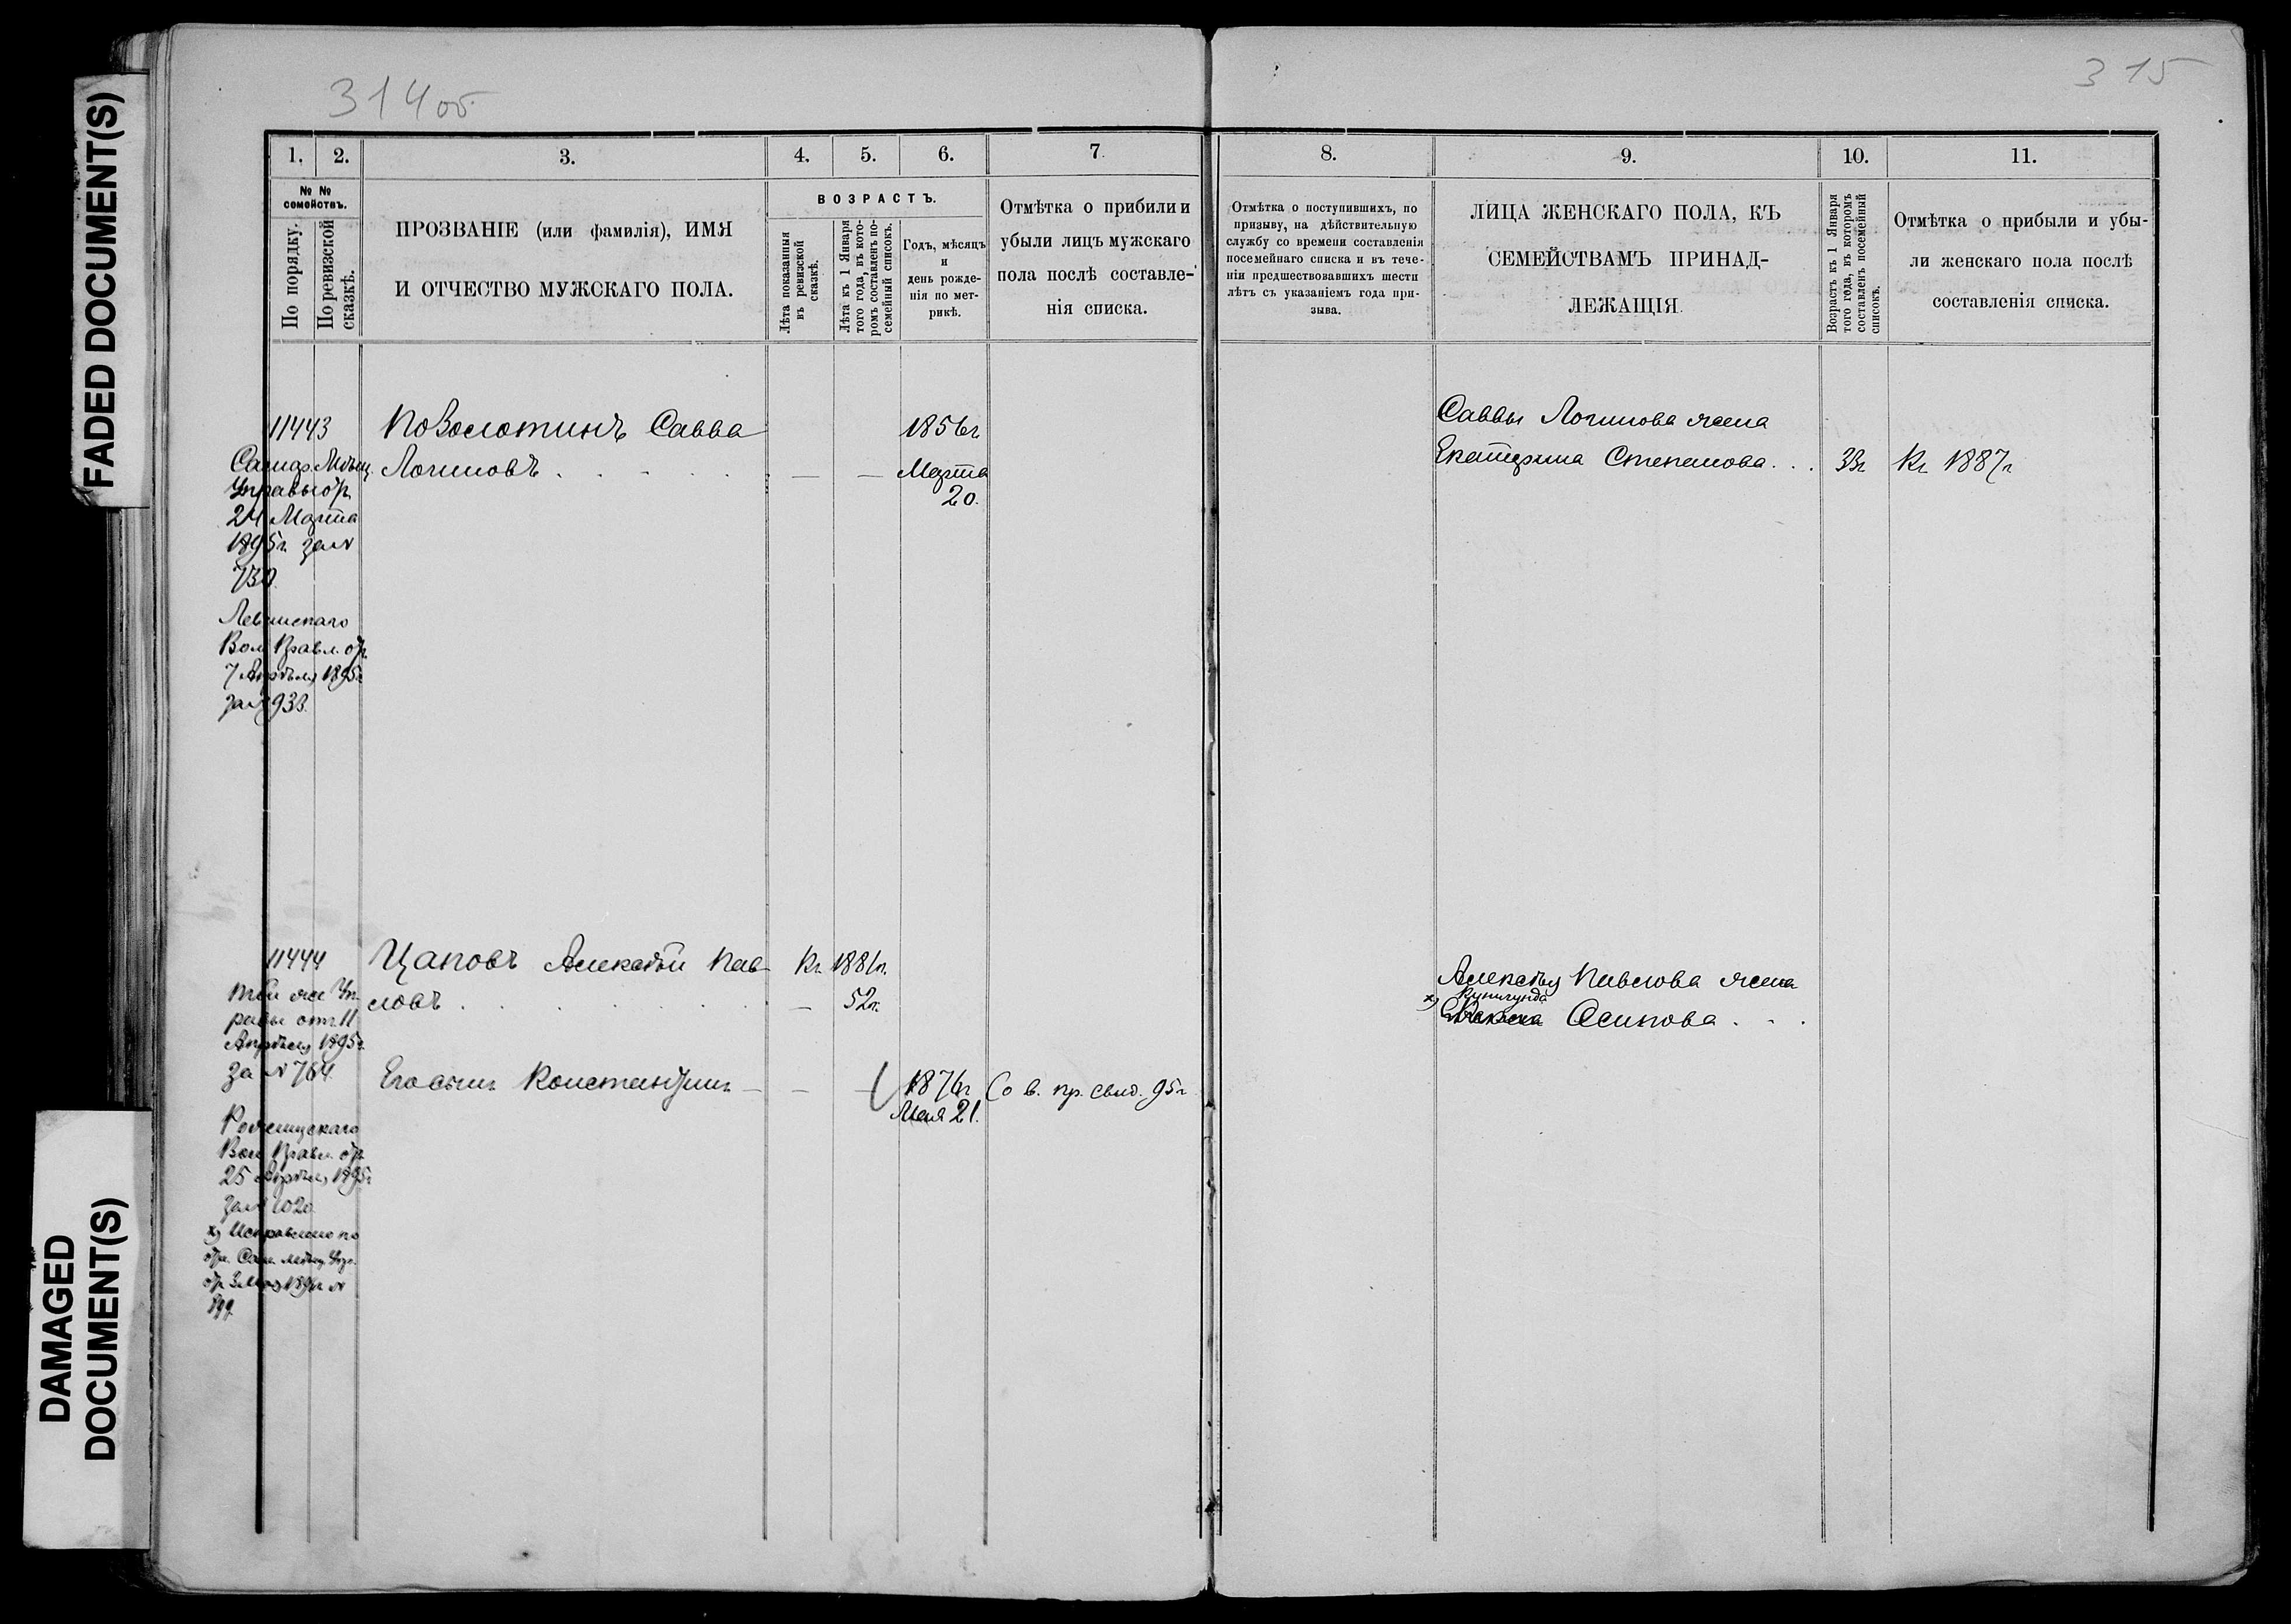 FADED DOCUMENT(S)
DAMAGED
DOCUMENT(S)
314об
315
1. 2. 3. 4. 5. 6. 7
№ №
семействъ.
По порядку.
По ревизской
сказкѣ.
ПРОЗВАНІЕ (или фамилія), ИМЯ
И ОТЧЕСТВО МУЖСКАГО ПОЛА.
ВОЗРАСТЪ.
Лѣта показанныя
въ ревизской
сказкѣ.
Лѣта къ 1 Января
того года, въ кото-
ромъ составленъ по-
семейный списокъ.
Годъ, мѣсяцъ
и
день рожде-
нія по мет-
рикѣ.
Отмѣтка о прибили и
убыли лицъ мужскаго
пола послѣ составле-
нія списка.
8. 9. 10. 11.
Отмѣтка о поступившихъ, по
призыву, на дѣйствительную
службу со времени составленія
посемейнаго списка и въ тече-
ніи предшествовавшихъ шести
лѣтъ съ указаніемъ года при-
зыва.
ЛИЦА ЖЕНСКАГО ПОЛА, КЪ
СЕМЕЙСТВАМЪ ПРИНАД-
ЛЕЖАЩІЯ.
Возрастъ къ 1 Января
того года, въ которомъ
составленъ посемейный
списокъ.
Отмѣтка о прибыли и убы-
ли женскаго пола послѣ
составленія списка.
11443
Самар. Мѣщ.
Управы от
24 Марта
1895г. за №
730.
Вол. Правл. от
7 Апрѣля 1895г.
за № 938.
Поволотинъ Савва
Логиновъ . . . . .
— — 1856г.
Марта
20.
Саввы Логинова жена
Екатерина Степанова . . . 33г. Къ 1887г.
11444
Той же Уп
равы от 11
Апрѣля 1895г.
за № 764.
Вол. Правл. от
25 Апрѣля 1895г.
за № 1020.
х) Исправлено по
Цаповъ Алексѣй Пав
ловъ . . . . . .
Къ 1881г.
— 52г.
Его сынъ Константинъ — — — 1876г. Со в. пр. свид. 95г.
Мая 21.
Алексѣя Павлова жена
х) Кунигунда
Осипова . . .